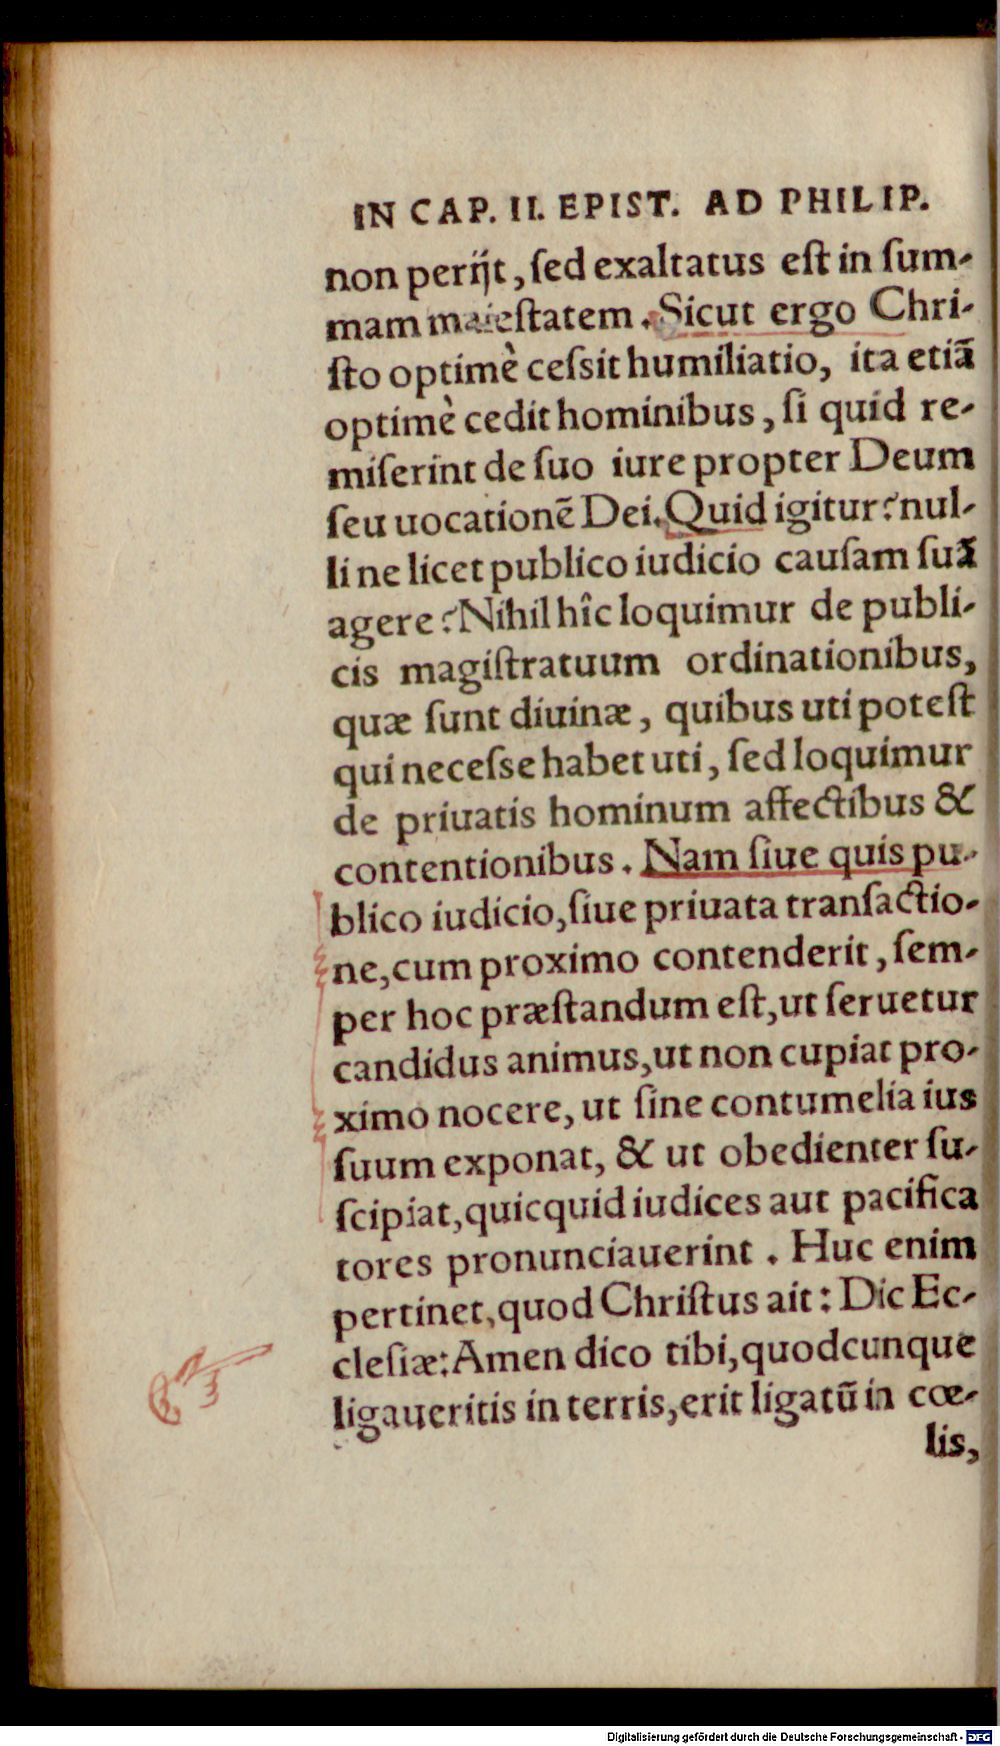 IN CAP. II. EPIST. AD PHILIP.
non perijt, ſed exaltatus eſt in ſum-
mam maieſtatem. Sicut ergo Chri-
ſto optimè ceſsit humiliatio, ita etiã
optimè cedit hominibus, ſi quid re-
miſerint de ſuo iure propter Deum
ſeu uocationẽ Dei. Quid igitur? nul-
li ne licet publico iudicio cauſam ſuã
agere? Nihil hîc loquimur de publi-
cis magiſtratuum ordinationibus,
quæ ſunt diuinæ, quibus uti poteſt
qui neceſse habet uti, ſed loquimur
de priuatis hominum affectibus &
contentionibus. Nam ſiue quis pu-
blico iudicio, ſiue priuata tranſactio-
ne, cum proximo contenderit, ſem-
per hoc præſtandum eſt, ut ſeruetur
candidus animus, ut non cupiat pro-
ximo nocere, ut ſine contumelia ius
ſuum exponat, & ut obedienter ſu-
ſcipiat, quicquid iudices aut pacifica
tores pronunciauerint. Huc enim
pertinet, quod Chriſtus ait: Dic Ec-
cleſiæ: Amen dico tibi, quodcunque
ligaueritis in terris, erit ligatũ in cœ-
lis,
Digitalisierung gefördert durch die Deutsche Forschungsgemeinschaft - DFG